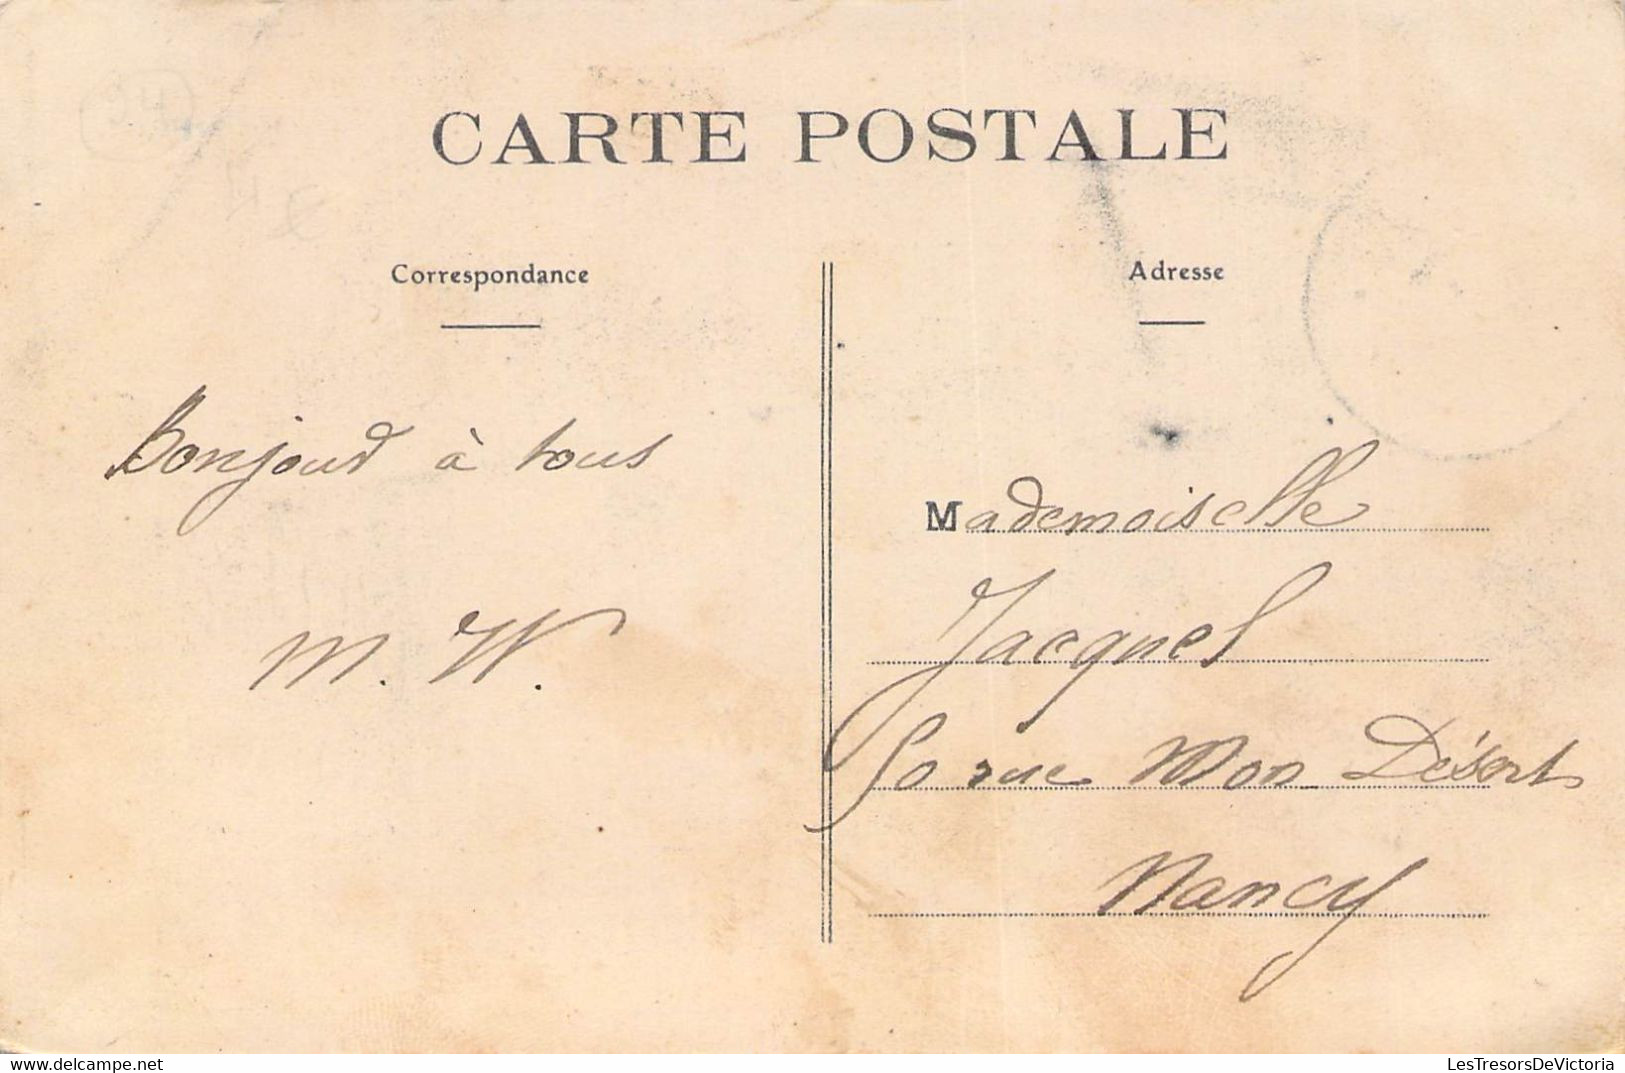 94
4 €
CARTE POSTALE
Correspondance
Bonjour à tous
M. W.
Adresse
Mademoiselle
Jacquel
50 rue Mon Désert
Nancy
LesTresorsDeVictoria